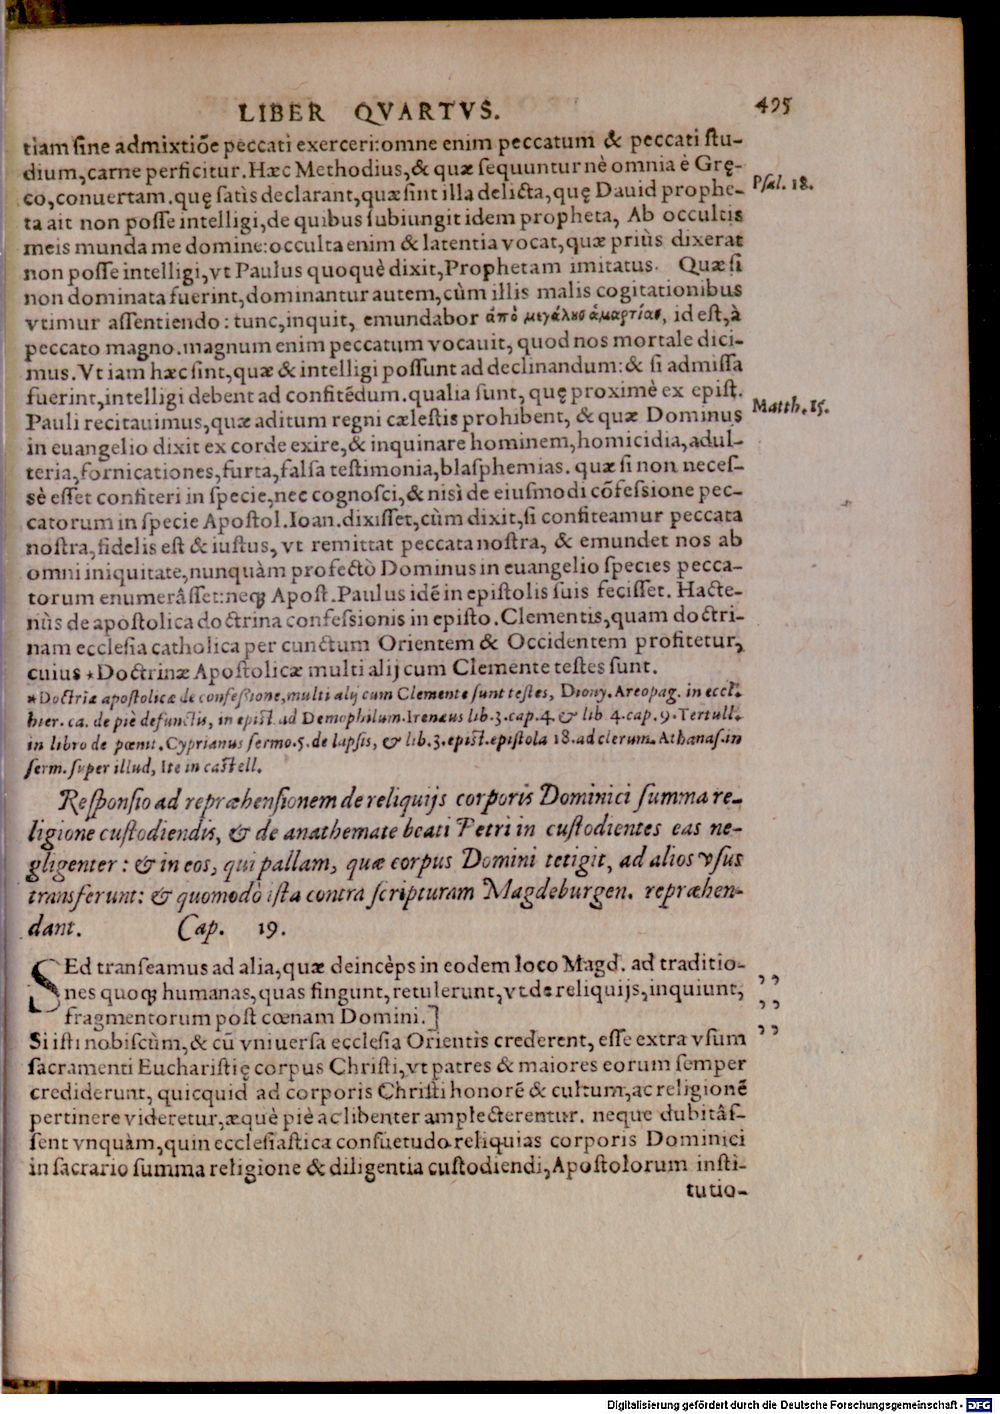 LIBER QVARTVS. 495
tiam sine admixtiõe peccati exerceri: omne enim peccatum & peccati stu-
dium, carne perficitur. Hæc Methodius, & quæ sequuntur nè omnia è Gręco,
co, conuertam. quę satis declarant, quæ sint illa delicta, quę Dauid prophe-
Psal. 18.
ta ait non posse intelligi, de quibus subiungit idem propheta, Ab occultis
meis munda me domine: occulta enim & latentia vocat, quæ priùs dixerat
non posse intelligi, vt Paulus quoquè dixit, Prophetam imitatus. Quæ si
non dominata fuerint, dominantur autem, cùm illis malis cogitationibus
vtimur assentiendo: tunc, inquit, emundabor ἀπὸ μεγάλησ ἁμαρτίας, id est, à
peccato magno. magnum enim peccatum vocauit, quod nos mortale dici-
mus. Vt iam hæc sint, quæ & intelligi possunt ad declinandum: & si admissa
fuerint, intelligi debent ad confitẽdum. qualia sunt, quę proximè ex epist.
Pauli recitauimus, quæ aditum regni cælestis prohibent, & quæ Dominus
Matth. 15.
in euangelio dixit ex corde exire, & inquinare hominem, homicidia, adul-
teria, fornicationes, furta, falsa testimonia, blasphemias. quæ si non neces-
sè esset confiteri in specie, nec cognosci, & nisì de eiusmodi cõfessione pec-
catorum in specie Apostol. Ioan. dixisset, cùm dixit, si confiteamur peccata
nostra, fidelis est & iustus, vt remittat peccata nostra, & emundet nos ab
omni iniquitate, nunquàm profectò Dominus in euangelio species pecca-
torum enumerâsset: neq; Apost. Paulus idẽ in epistolis suis fecisset. Hacte-
nùs de apostolica doctrina confessionis in episto. Clementis, quam doctri-
nam ecclesia catholica per cunctum Orientem & Occidentem profitetur,
cuius * Doctrinæ Apostolicæ multi alij cum Clemente testes sunt.
* Doctriæ apostolicæ de confessione, multi alij cum Clemente sunt testes, Diony. Areopag. in eccl.
hier. ca. de piè defunctis, in epist. ad Demophilum. Irenæus lib. 3. cap. 4. & lib 4. cap. 9. Tertull.
in libro de pœnit. Cyprianus sermo. 5. de lapsis, & lib. 3. epist. epistola 18. ad clerum. Athanas. in
serm. super illud, Ite in castell.
Responsio ad repræhensionem de reliquijs corporis Dominici summa re-
ligione custodiendis, & de anathemate beati Petri in custodientes eas ne-
gligenter: & in eos, qui pallam, quæ corpus Domini tetigit, ad alios vsus
transferunt: & quomodò ista contra scripturam Magdeburgen. repræhen-
dant. Cap. 19.
SEd transeamus ad alia, quæ deincèps in eodem loco Magd. ad traditio-
nes quoq; humanas, quas fingunt, retulerunt, vt de reliquijs, inquiunt, ,,
fragmentorum post cœnam Domini.] ,,
Si isti nobiscùm, & cũ vniuersa ecclesia Orientis crederent, esse extra vsum ,,
sacramenti Eucharistię corpus Christi, vt patres & maiores eorum semper
crediderunt, quicquid ad corporis Christi honorẽ & cultum, ac religionẽ
pertinere videretur, æquè piè ac libenter amplecterentur. neque dubitâs-
sent vnquàm, quin ecclesiastica consuetudo reliquias corporis Dominici
in sacrario summa religione & diligentia custodiendi, Apostolorum insti-
tutio-
Digitalisierung gefördert durch die Deutsche Forschungsgemeinschaft - DFG